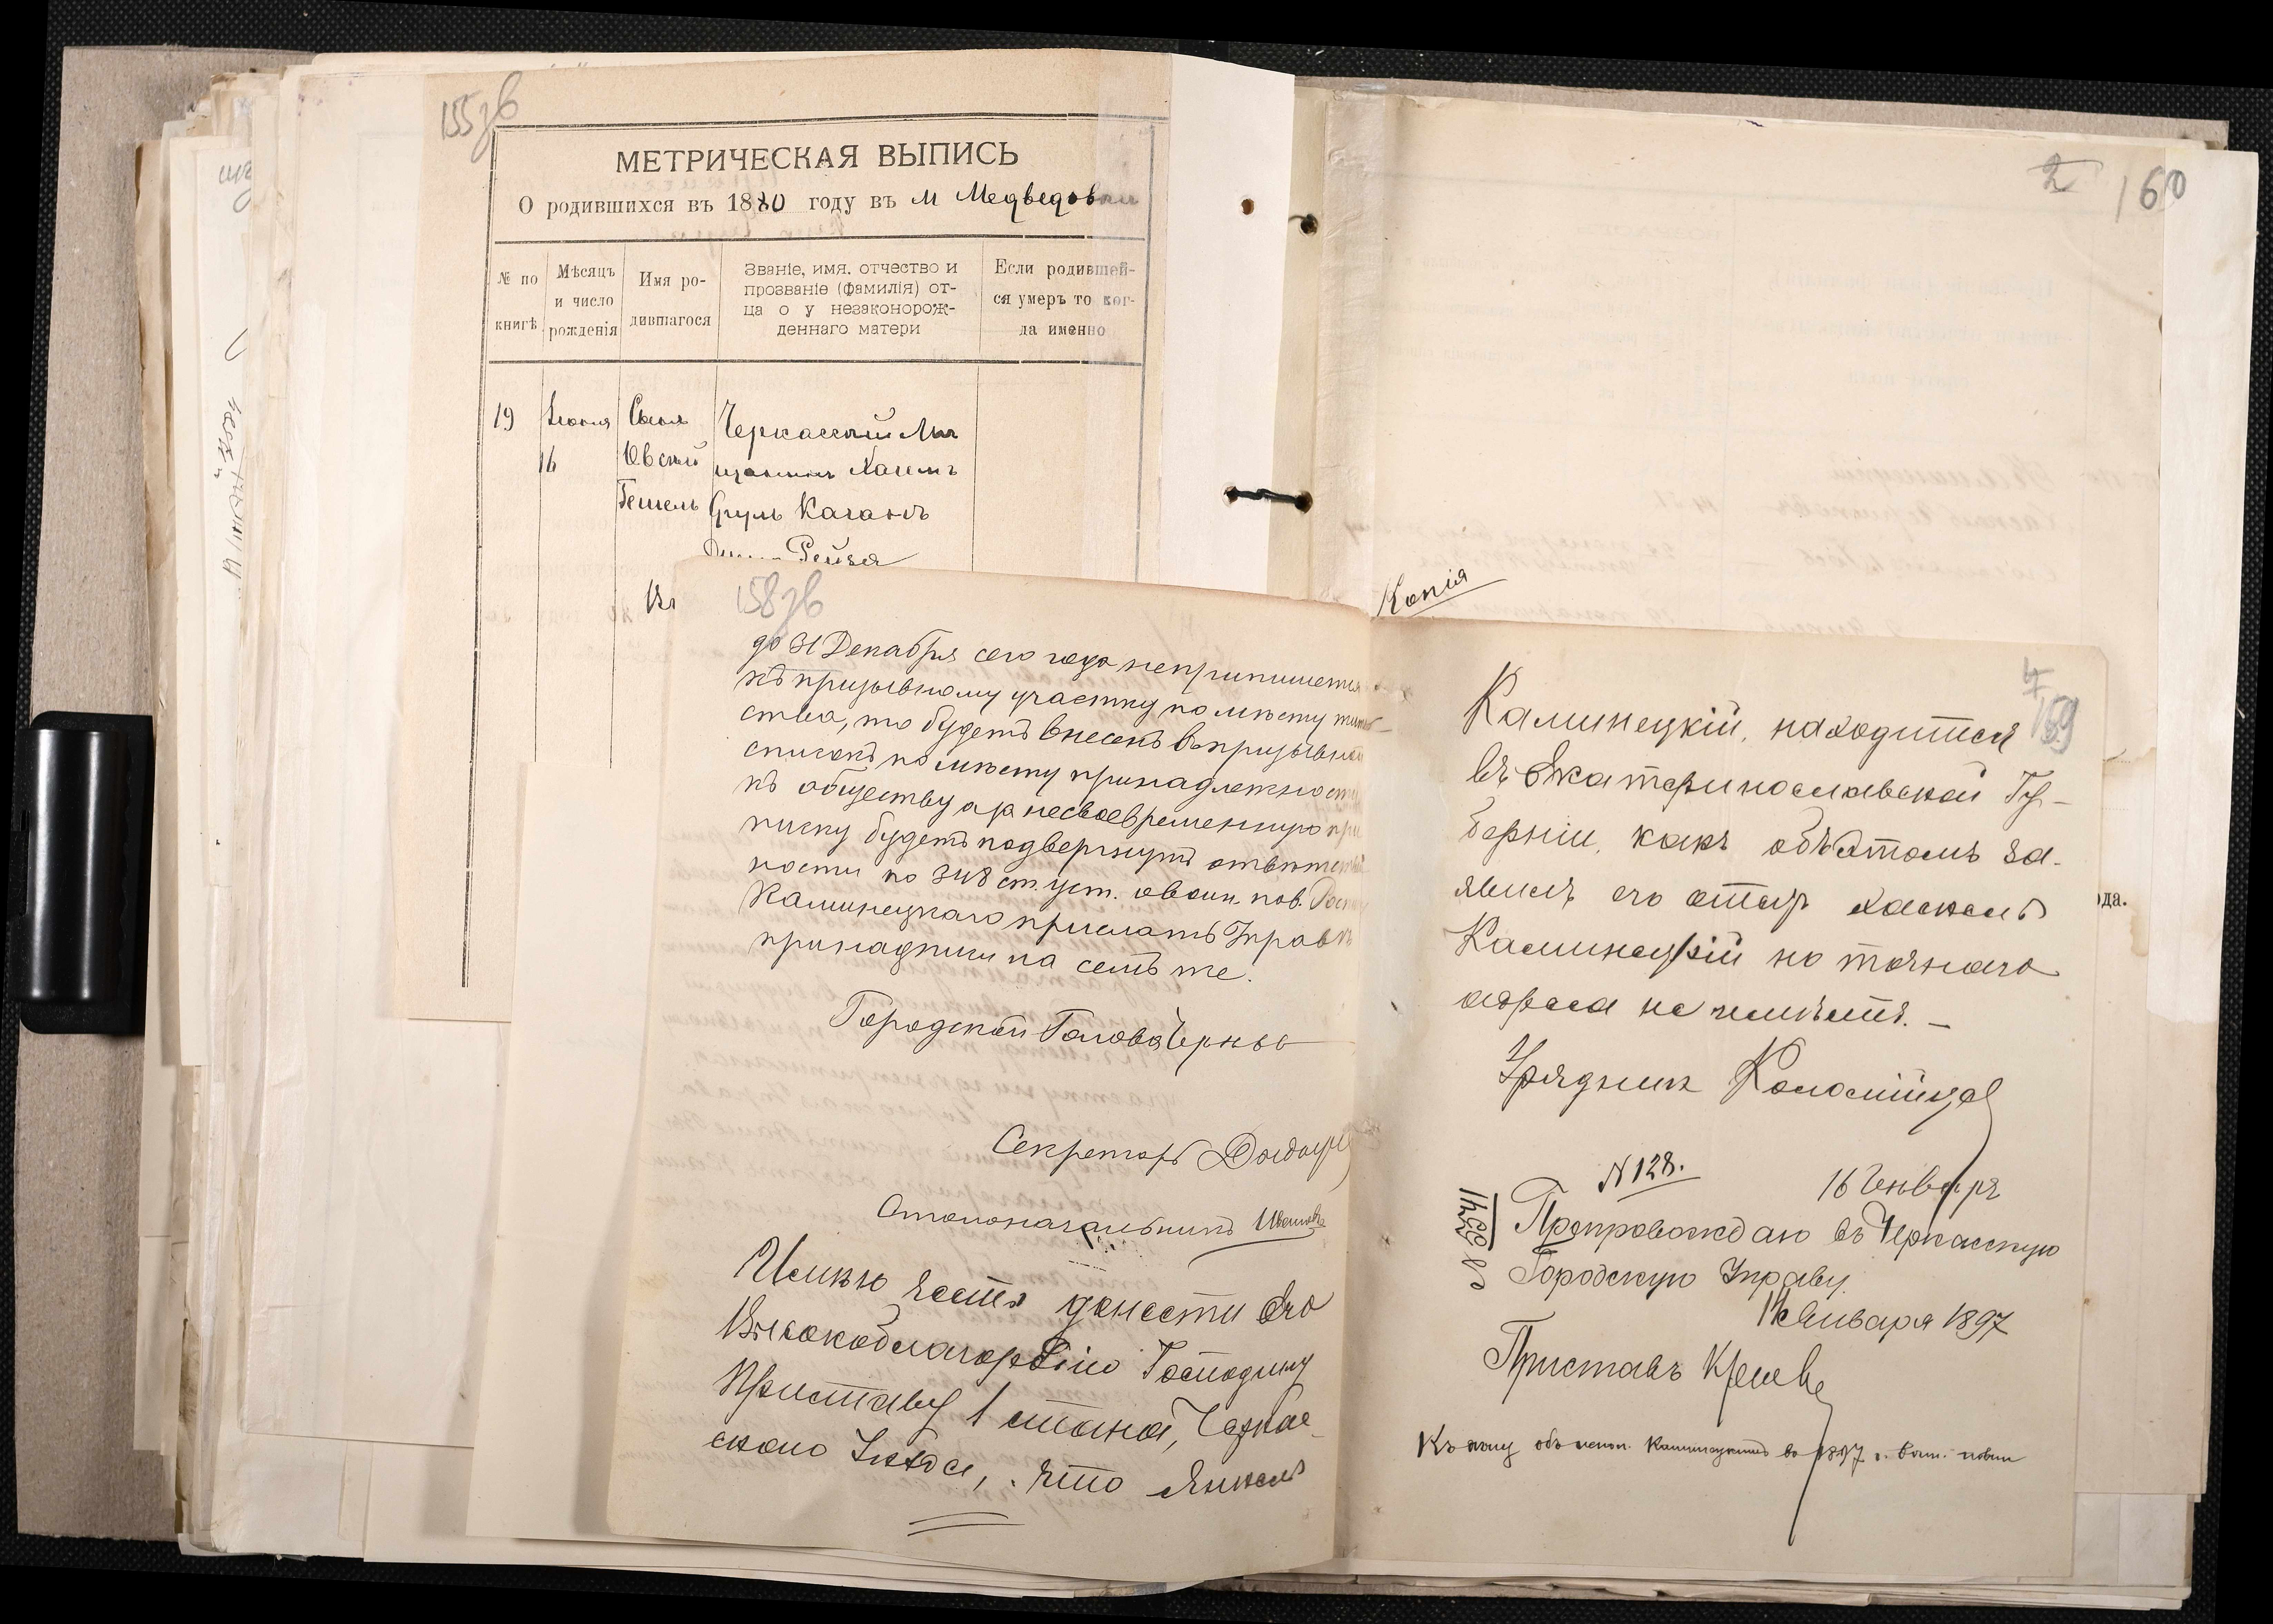 155зв
МЕТРИЧЕСКАЯ ВЫПИСЬ
О родившихся въ 1880 году въ м Медведов
№ по книгѣ
Мѣсяцъ и число рожденія
Имя родившагося
Званіе, имя, отчество и
прозваніе (фамилія) от-
ца о у незаконорож-
деннаго матери
Если родившей-
ся умеръ то ког-
да именно
19
16
Овсей
Гешель
Черкасскій Мѣ
щанинъ Хаимъ
Сруль Каганъ
Рейзя
158зв
до 31 Декабря сего года неприпишется
къ призывному участку по мѣсту житель-
ства, то будетъ внесенъ въ призывной
списокъ по мѣсту принадлежности
къ обществу а за несвоевременную при
писку будетъ подвергнутъ отвѣтствен
ности по 348 ст. уст. о воин. пов.
Каминецкаго прислать Управѣ
принадписи на семъ же.
Городской Голова
Секретарь
Столоначальникъ
Имѣю честь донести Его
Высокоблагородію Господину
Приставу 1 стана, Черка-
скаго Уѣзда, что Янкель
Копія
2
160
4
159
Каминецкій, находится
въ Екатеринославской Гу-
берніи, какъ объ этомъ за-
явилъ его отецъ Хаскель
Каминецкій но точнаго
адреса не имѣетъ. —
Урядник Коломійцев
N 128.
16 Генваря
Препровождаю въ Черкасскую
Городскую Управу.
Января 1897
Приставъ
Къ
1897 г.
да.